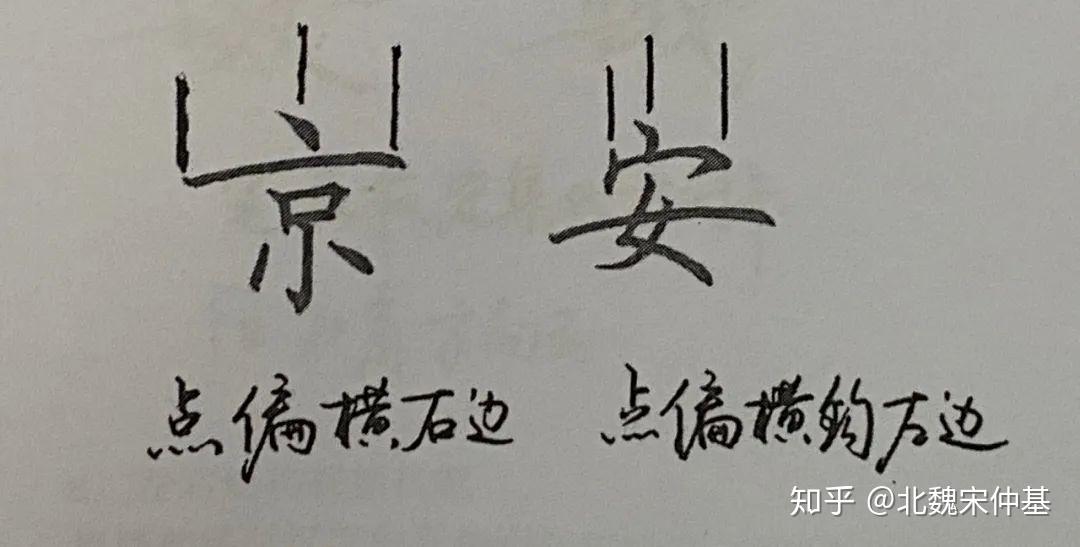 京 安
点偏横右边 点偏横钩左边
知乎 @北魏宋仲基